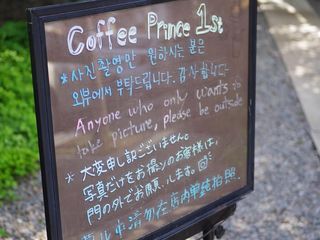 Coffee Prince 1st
*사진촬영만 원하시는 분은
외부에서 부탁드립니다. 감사합니다
Anyone who only wants to
take picture, please be outside
*大変申し訳ございません。
写真だけをお撮りのお客様は、
門の外でお願いします。
請勿在店內單純拍照